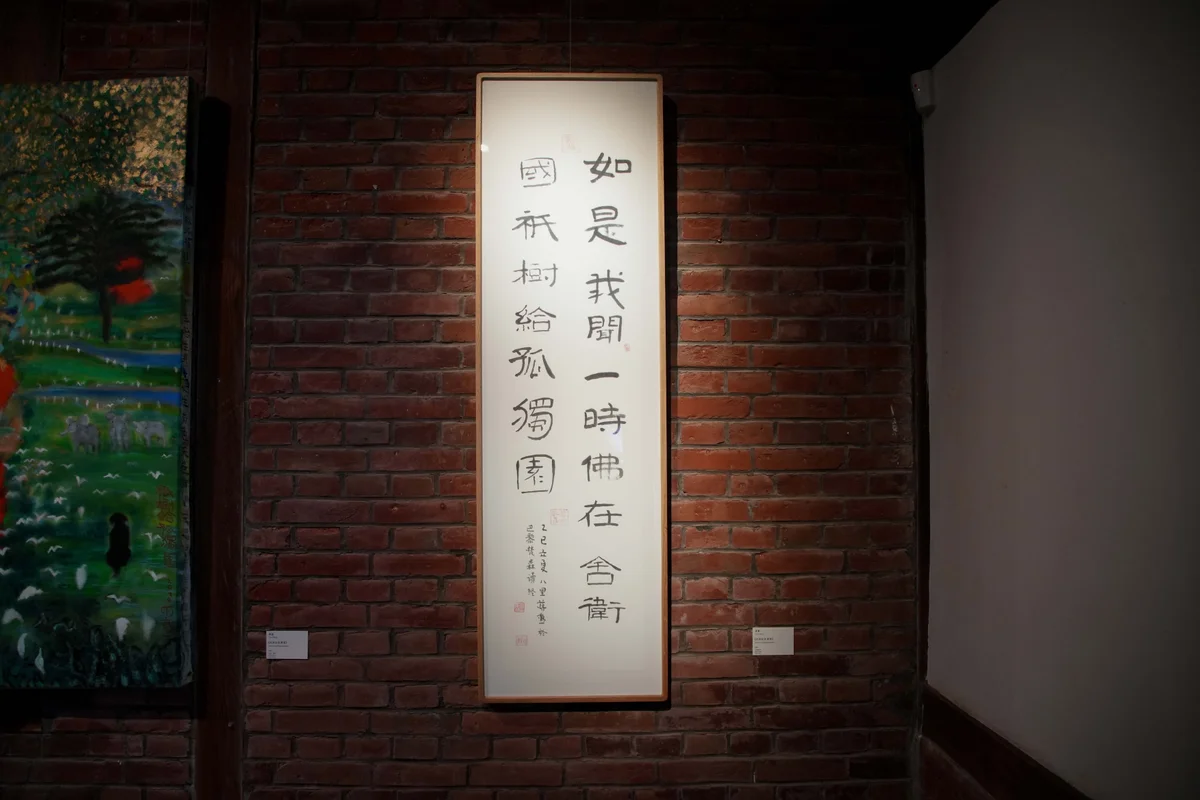 如是我聞一時佛在舍衛
國祇樹給孤獨園
乙巳立夏八里